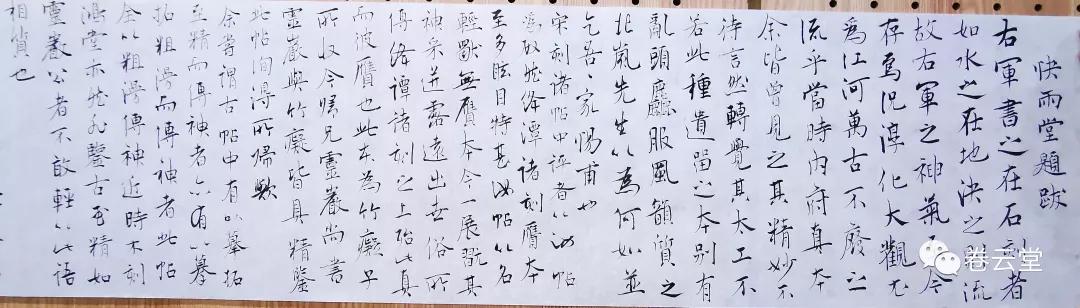 快雨堂題跋
右軍書之在石刻者
如水之在地決之流
故右軍之神氣至今
存焉況淳化大觀尤
為江河萬古不廢之
流乎當時內府真本
余皆曾見之其精妙不
待言然轉覺其太工不
若此種遺留之本別有
亂頭麤服風韻質之
北嵐先生以為何如並
乞吾家惕甫也
宋刻諸帖中評者以汝帖
為敖然絳潭諸刻贋本
至多眩目特甚汝帖以名
輕獸無贋本今一展翫其
神采迸露遠出世俗所
傳絳譚諸刻之上殆此真
而彼贋也此本為竹癡子
所收今歸兄靈巖尚書
靈巖與竹癡皆具精鑒
此帖洵得所歸歟
余嘗謂古帖中有以摹拓
至精而傳神者亦有以摹
拓粗漫而傳神者此帖
全以粗漫傳神近時木刻
鴻堂亦然
靈巖公者不敢輕以此語
相質也
卷云堂